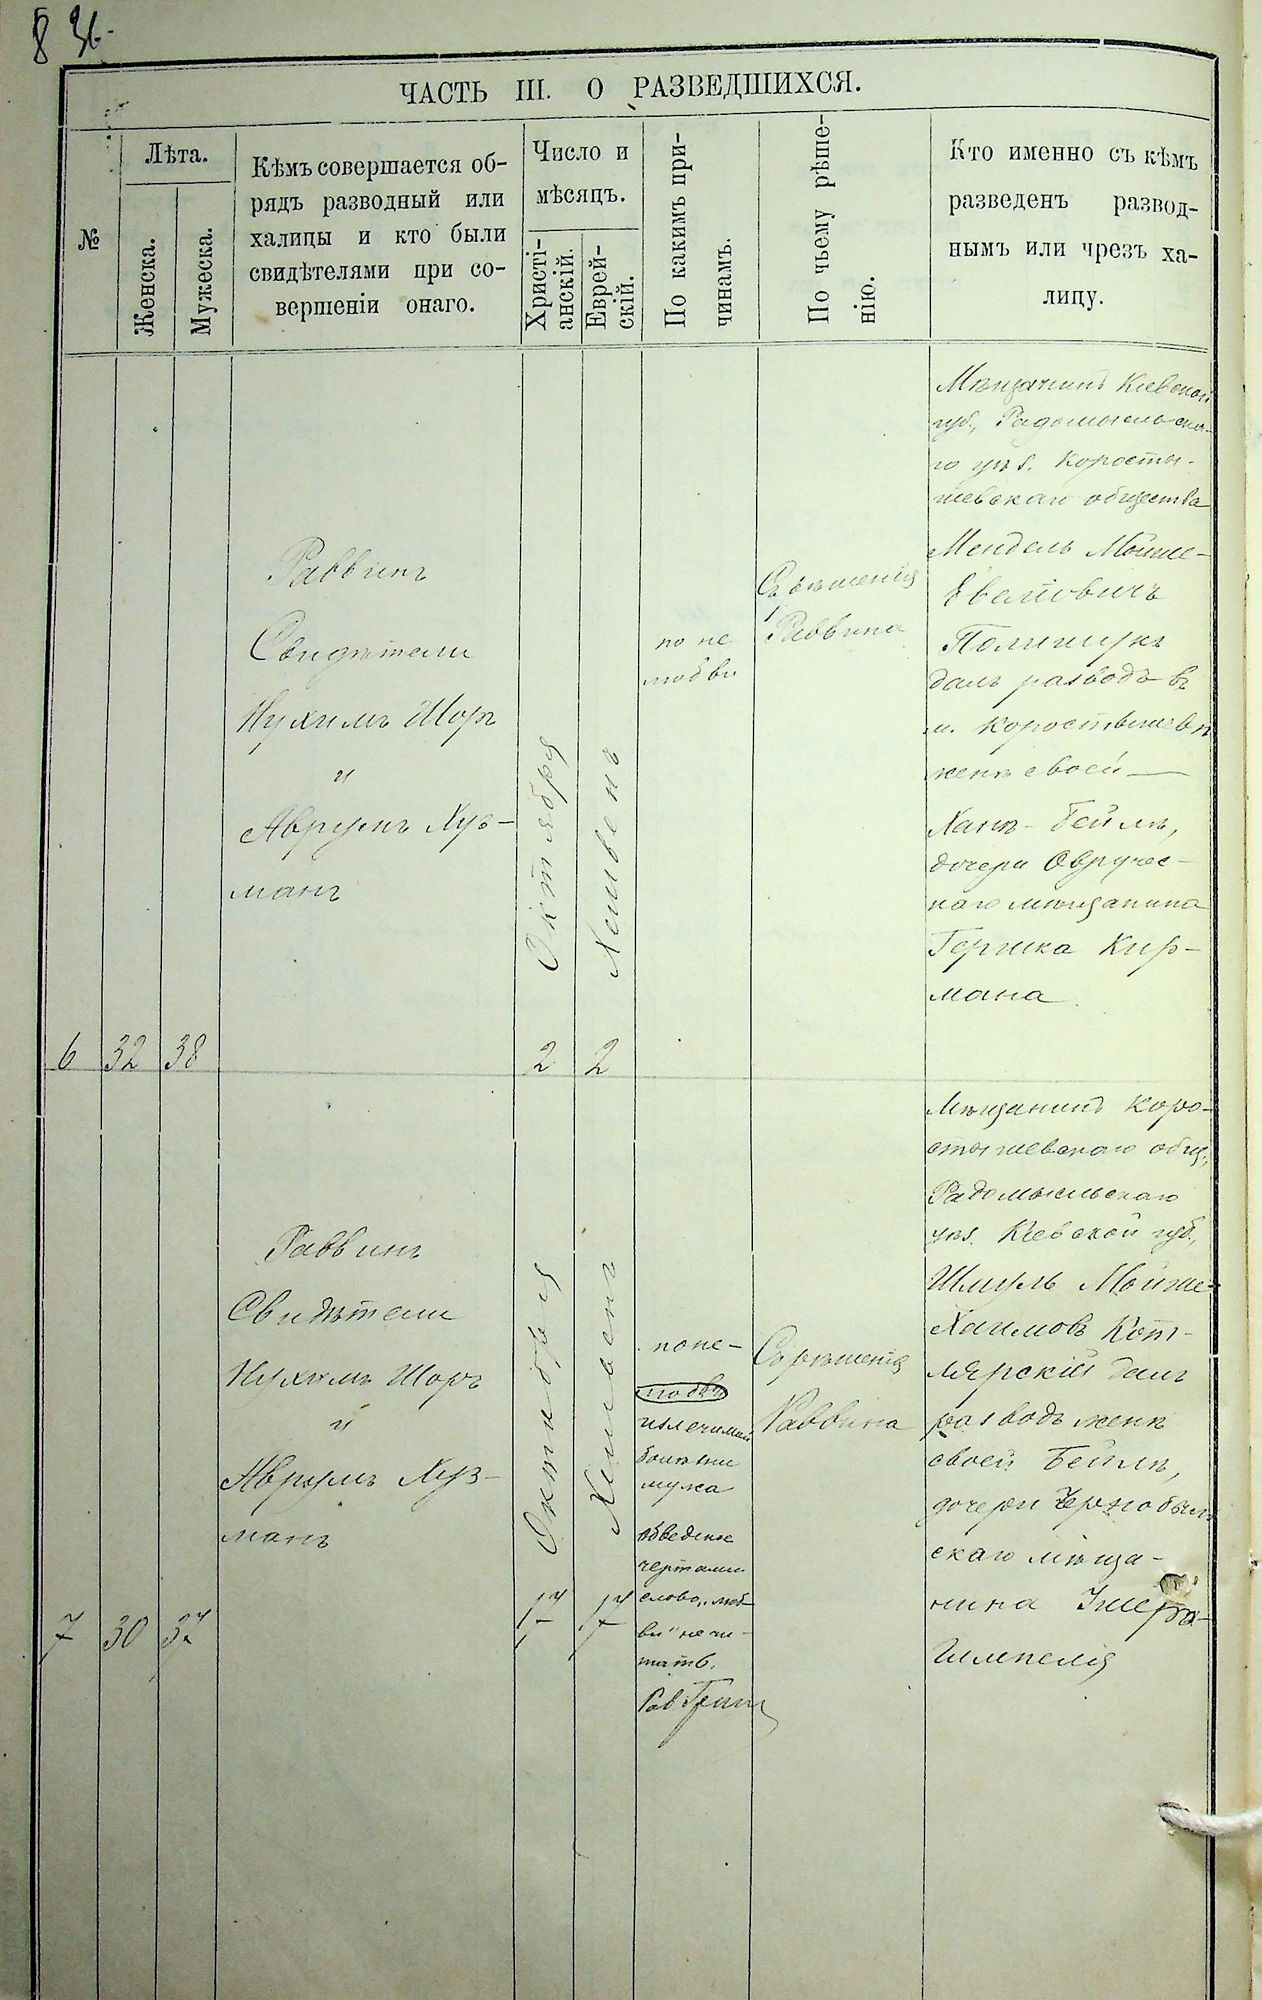 8 36
ЧАСТЬ III. О РАЗВЕДШИХСЯ.
№
Лѣта.
Женска.
Мужеска.
Кѣмъ совершается об-
рядъ разводный или
халицы и кто были
свидѣтелями при со-
вершеніи онаго.
Число и
мѣсяцъ.
Христі-
анскій.
Еврей-
скій.
По какимъ при-
чинамъ.
По чьему рѣше-
нію.
Кто именно съ кѣмъ
разведенъ развод-
нымъ или чрезъ ха-
лицу.
6
32
38
Раввинъ
Свидѣтели
Нухимъ Шоръ
и
Аврумъ Хуз-
манъ
Октября
2
Хешвенъ
2
по не
любви
Съ рѣшенія
Раввина
Мѣщанинъ Кіевской
губ., Радомысльска-
го уѣз. Коросты-
шевскаго общества
Мендель Мойше-
Эвелговичъ
Полищукъ
далъ разводъ въ
м. Коростышевѣ
женѣ своей —
Ханѣ-Бейлѣ,
дочери Овручс-
каго мѣщанина
Гершка Кир-
мана
7
30
37
Раввинъ
Свидѣтели
Нухимъ Шоръ
и
Аврумъ Хуз-
манъ
Октября
17
Хешвенъ
17
по не-
любви
излечимой
болѣзни
мужа
обведенное
чертами
слово „люб-
ви" не чи-
тать.
Рав.
Съ рѣшенія
Раввина
Мѣщанинъ Коро-
стышевскаго общ.,
Радомысльскаго
уѣз. Кіевской губ.,
Шмуль Мойше-
Хаимовъ Кот-
лярскій далъ
разводъ женѣ
своей Бейлѣ,
дочери Чернобыль
скаго мѣща-
нина
Гимпеля